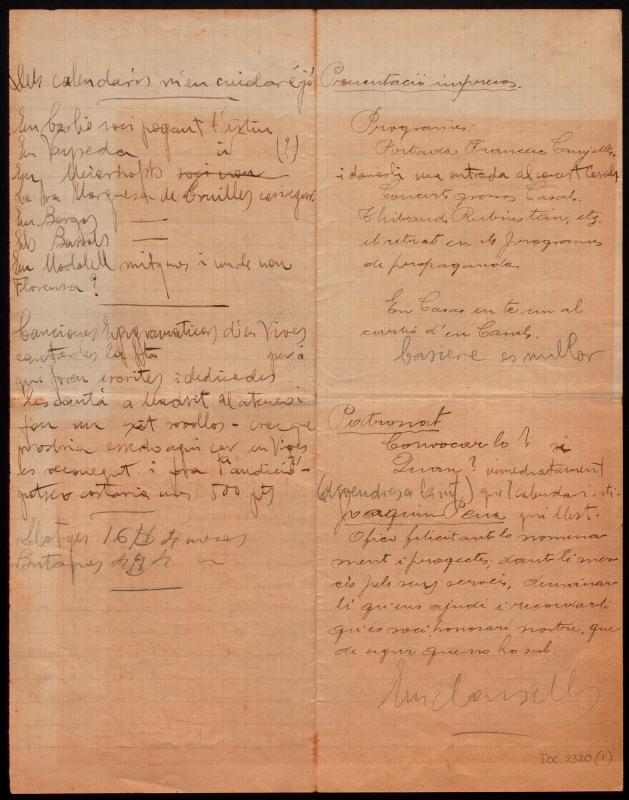 Els calendaris m'en cuidaré jo
En Barbié soci pagant l'istiu
En Cuspeda id (?)
En Meierhofs soci non
La Sra Marquesa de Cruilles
En Borgos —
Els Bassols —
En Modolell mitgnes i unde non
Florensa?
Canciones Epigramáticas d'en Vives
cantarles la per a
qui foren escrites i dedicades
les cantà a Madrit al ateneo i
fou un exit crec que
podria esser aqui car en Vives
es reconegut i fora l'audició
potser costaria uns 500 pts
Llotges 16 4 meses
Butaques 4
Presentació impresos.
Programes:
Portada Francesc Canyelles,
i donarli una entrada al concert Casals
Concerts grossos Casals.
Thibaud, Rubinstein, etz.
el retrat en els programes
de propaganda.
En Casas en te un al
carbó d'en Casals.
Carriere es millor
Patronat
Convocarlo? si
Quan? immediatament
(divendres a la nit) que l calendari esti-
Joaquim Pena qui llest.
Ofici felicitantlo nomena
ment i projectes, donantli mer
cès pels seus serveis, demanar
li qu'ens ajudi i recordarli
qu'es soci honorari nostre, que
de segur que no ho sab.
Doc. 2320 (1)